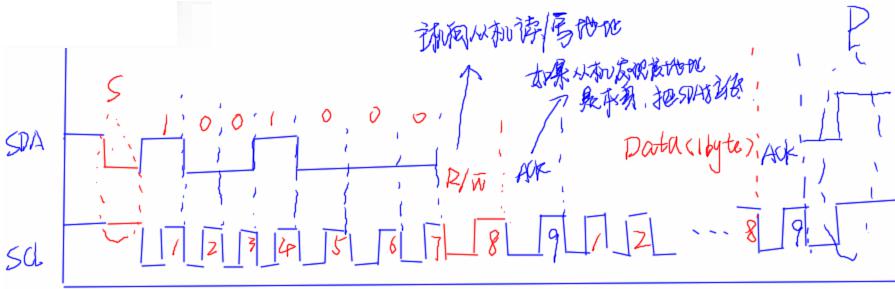 主机向从机读/写地址
P
如果从机发现该地址
是本身,把SDA拉低
S
1 0 0 1 0 0 0
SDA
R/W̅
ACK
Data(1byte)
ACK
SCL
1 2 3 4 5 6 7 8 9 1 2 ... 8 9